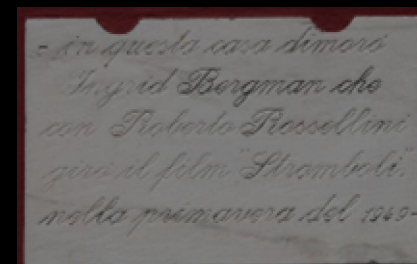 - in questa casa dimorò
Ingrid Bergman che
con Roberto Rossellini
girò il film "Stromboli".
nella primavera del 1949-